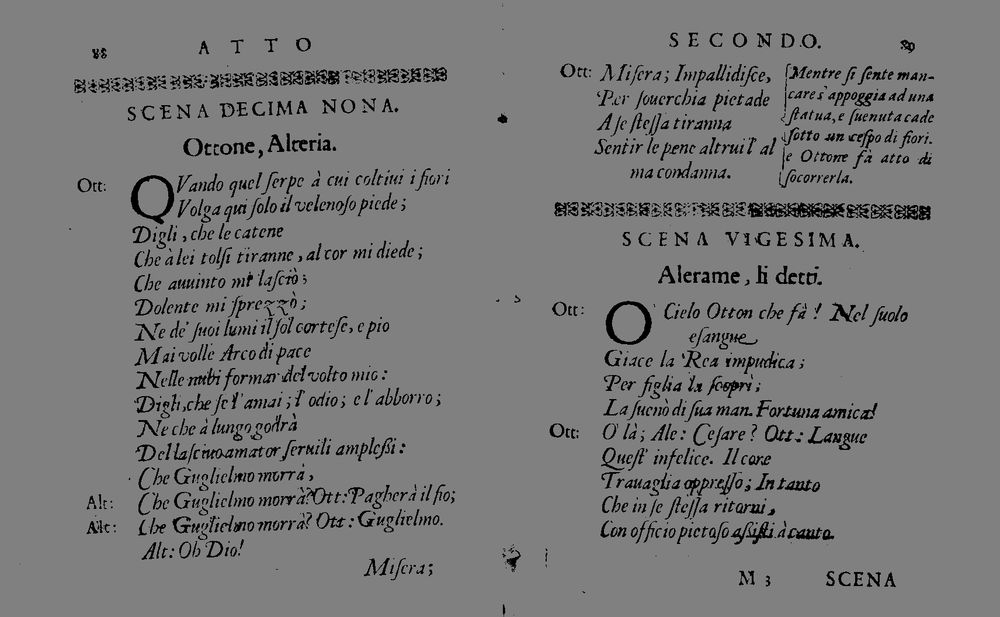 88 ATTO
SCENA DECIMA NONA.
Ottone, Alteria.
Ott: QVando quel ſerpe à cui coltiui i fiori
Volga qui ſolo il velenoſo piede;
Digli, che le catene
Che à lei tolſi tiranne, al cor mi diede;
Che auuinto mi laſciò;
Dolente mi ſprezzò;
Ne de' ſuoi lumi il ſol corteſe, e pio
Mai volle Arco di pace
Nelle nubi formar del volto mio:
Digli, che ſe l'amai; l'odio; e l'abborro;
Ne che à lungo godrà
Del laſciuo amator ſeruili ampleſſi:
Che Guglielmo morrà,
Alt: Che Guglielmo morrà? Ott: Pagherà il fio;
Alt: Che Guglielmo morrà? Ott: Guglielmo.
Alt: Oh Dio!
Miſera;
SECONDO. 89
Ott: Miſera; Impallidiſce,
Per ſouerchia pietade
A ſe ſteſſa tiranna
Sentir le pene altrui l'al
ma condanna.
Mentre ſi ſente man-
care s'appoggia ad una
ſtatua, e ſuenuta cade
ſotto un ceſpo di fiori.
e Ottone fà atto di
ſocorrerla.
SCENA VIGESIMA.
Alerame, li detti.
Ott: O Cielo Otton che fà! Nel ſuolo
eſangue
Giace la Rea impudica;
Per figlia la ſcoprì;
La ſuenò di ſua man. Fortuna amica!
Ott: O là; Ale: Ceſare? Ott: Langue
Queſt' infelice. Il core
Trauaglia oppreſſo; In tanto
Che in ſe ſteſſa ritorni,
Con officio pietoſo aſſiſti à canto.
M 3 SCENA